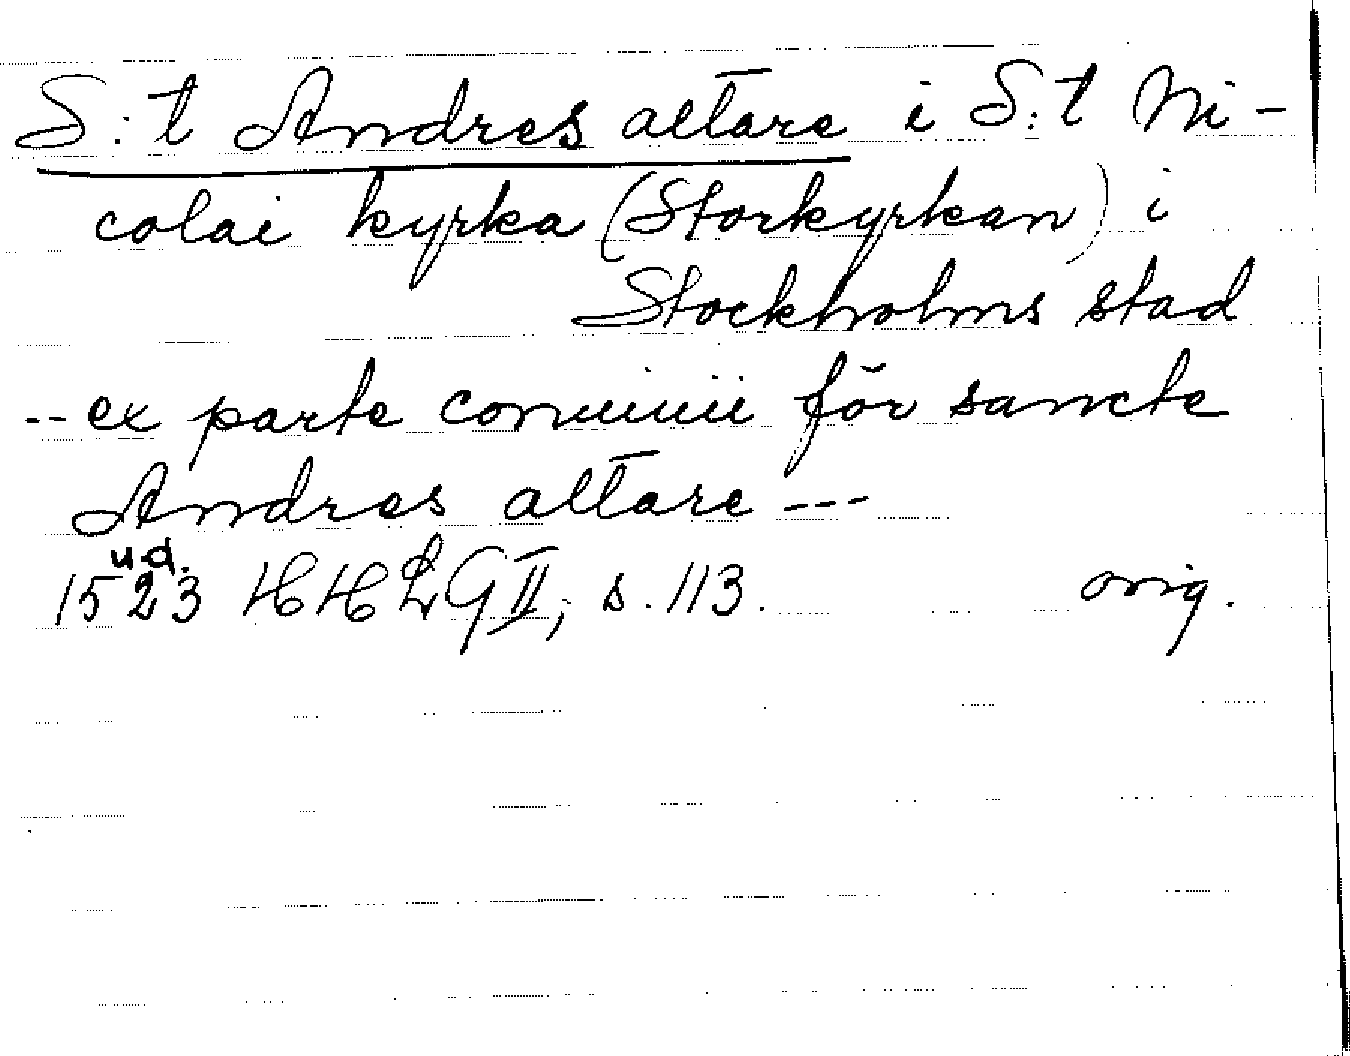 S:t Andres altare i S:t Ni-
colai kyrka (Storkyrkan) i
Stockholms stad
-- ex parte conuiuii för sancte
Andres altare ---
u.d.
1523 HHLG II, s. 113. orig.